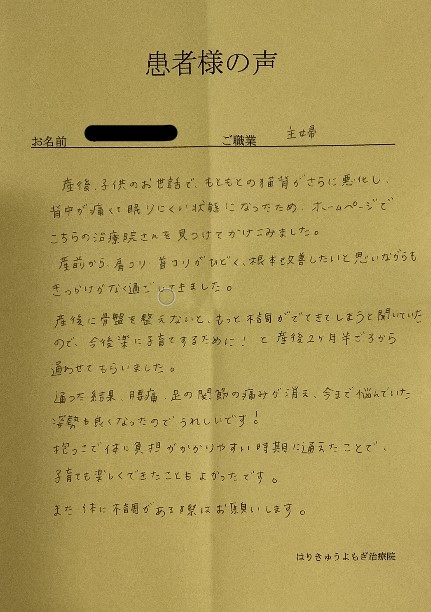 患者様の声
お名前 ご職業 主婦
産後、子供のお世話で、もともとの猫背がさらに悪化し、
背中が痛くて眠りにくい状態になったため、ホームページで
こちらの治療院さんを見つけてかけこみました。
産前から、肩コリ・首コリがひどく、根本を改善したいと思いながらも
きっかけがなく過ごしてきました。
産後に骨盤を整えないと、もっと不調がでてきてしまうと聞いていた
ので、今後楽に子育てするために！と産後2ヶ月半ごろから
通わせてもらいました。
通った結果、腰痛、足の関節の痛みが消え、今まで悩んでいた
姿勢も良くなったのでうれしいです！
抱っこで体に負担がかかりやすい時期に通えたことで、
子育ても楽しくできたこともよかったです。
また体に不調がある際はお願いします。
はりきゅうよもぎ治療院